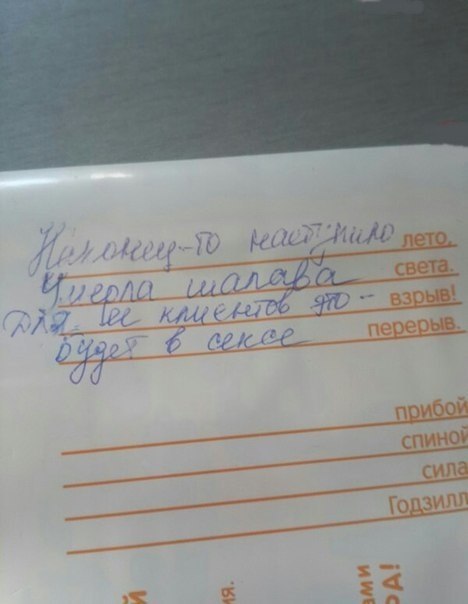 Наконец-то наступило лето,
Умерла шалава света.
Для её клиентов это - взрыв!
Будет в сексе перерыв.
прибой
спиной
сила
Годзилл